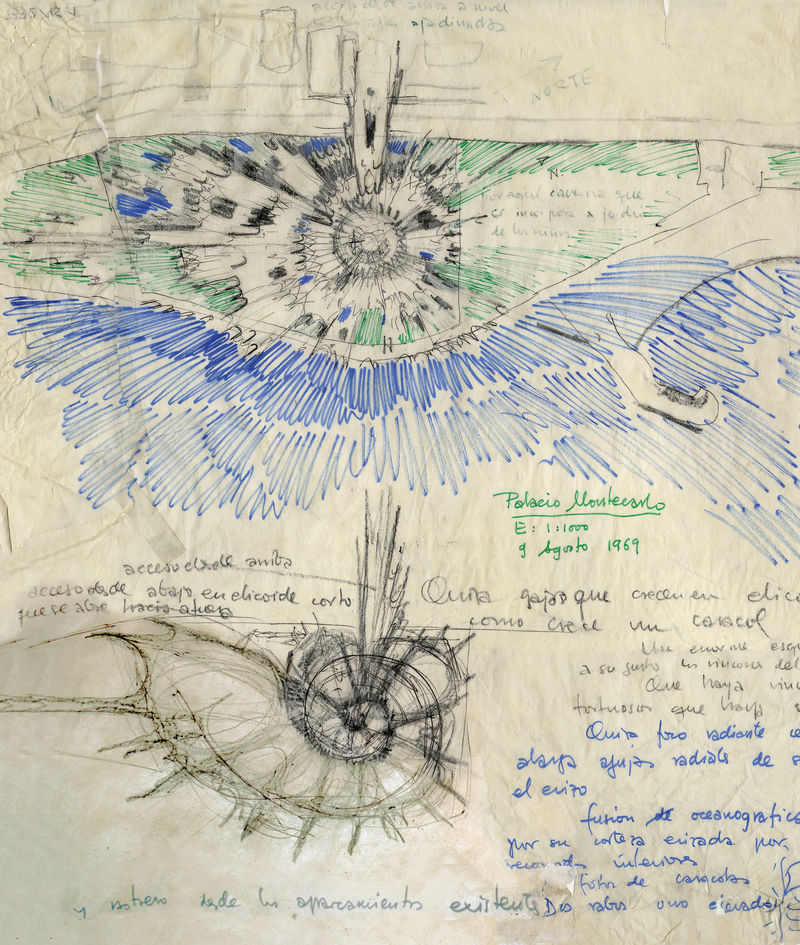 acceso desde arriba a nivel
ajardinadas
NORTE
N.
por aquí caverna que
se incorpora a jardín
de los niños
H
Palacio Montecarlo
E: 1:1000
9 Agosto 1969
acceso desde arriba
acceso desde abajo en elicoide corto
que se abre hacia afuera
Quiza gajos que crecen en elico
como crece un caracol
Un enorme esqu
a su gusto los rincones del
Que haya rinc
tortuosos que haya s
Quiza foro radiante ce
alarga agujas radiales de s
el erizo
fusión de oceanografico
por su corteza erizada por
recorridos interiores
fotos de caracolas
y rastrero desde los aparcamientos existentes
Dos rabos uno elevado